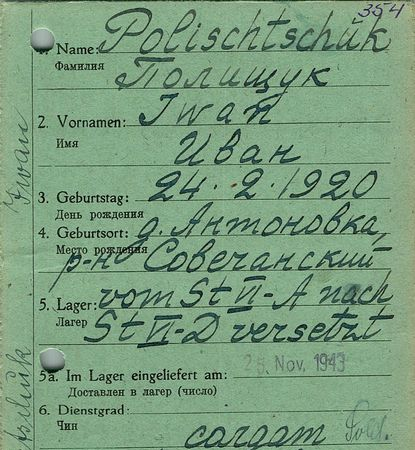 354
1. Name: Polischtschuk
Фамилия Полищук
2. Vornamen: Iwan
Имя Иван
3. Geburtstag: 24.2.1920
День рождения
4. Geburtsort: д. Антоновка,
Место рождения р-н Совечанский
5. Lager: vom St VI-A nach
Лагер St VI-D versetzt
5a. Im Lager eingeliefert am: 25. Nov. 1943
Доставлен в лагер (число)
6. Dienstgrad:
Чин солдат Sold.
Iwan